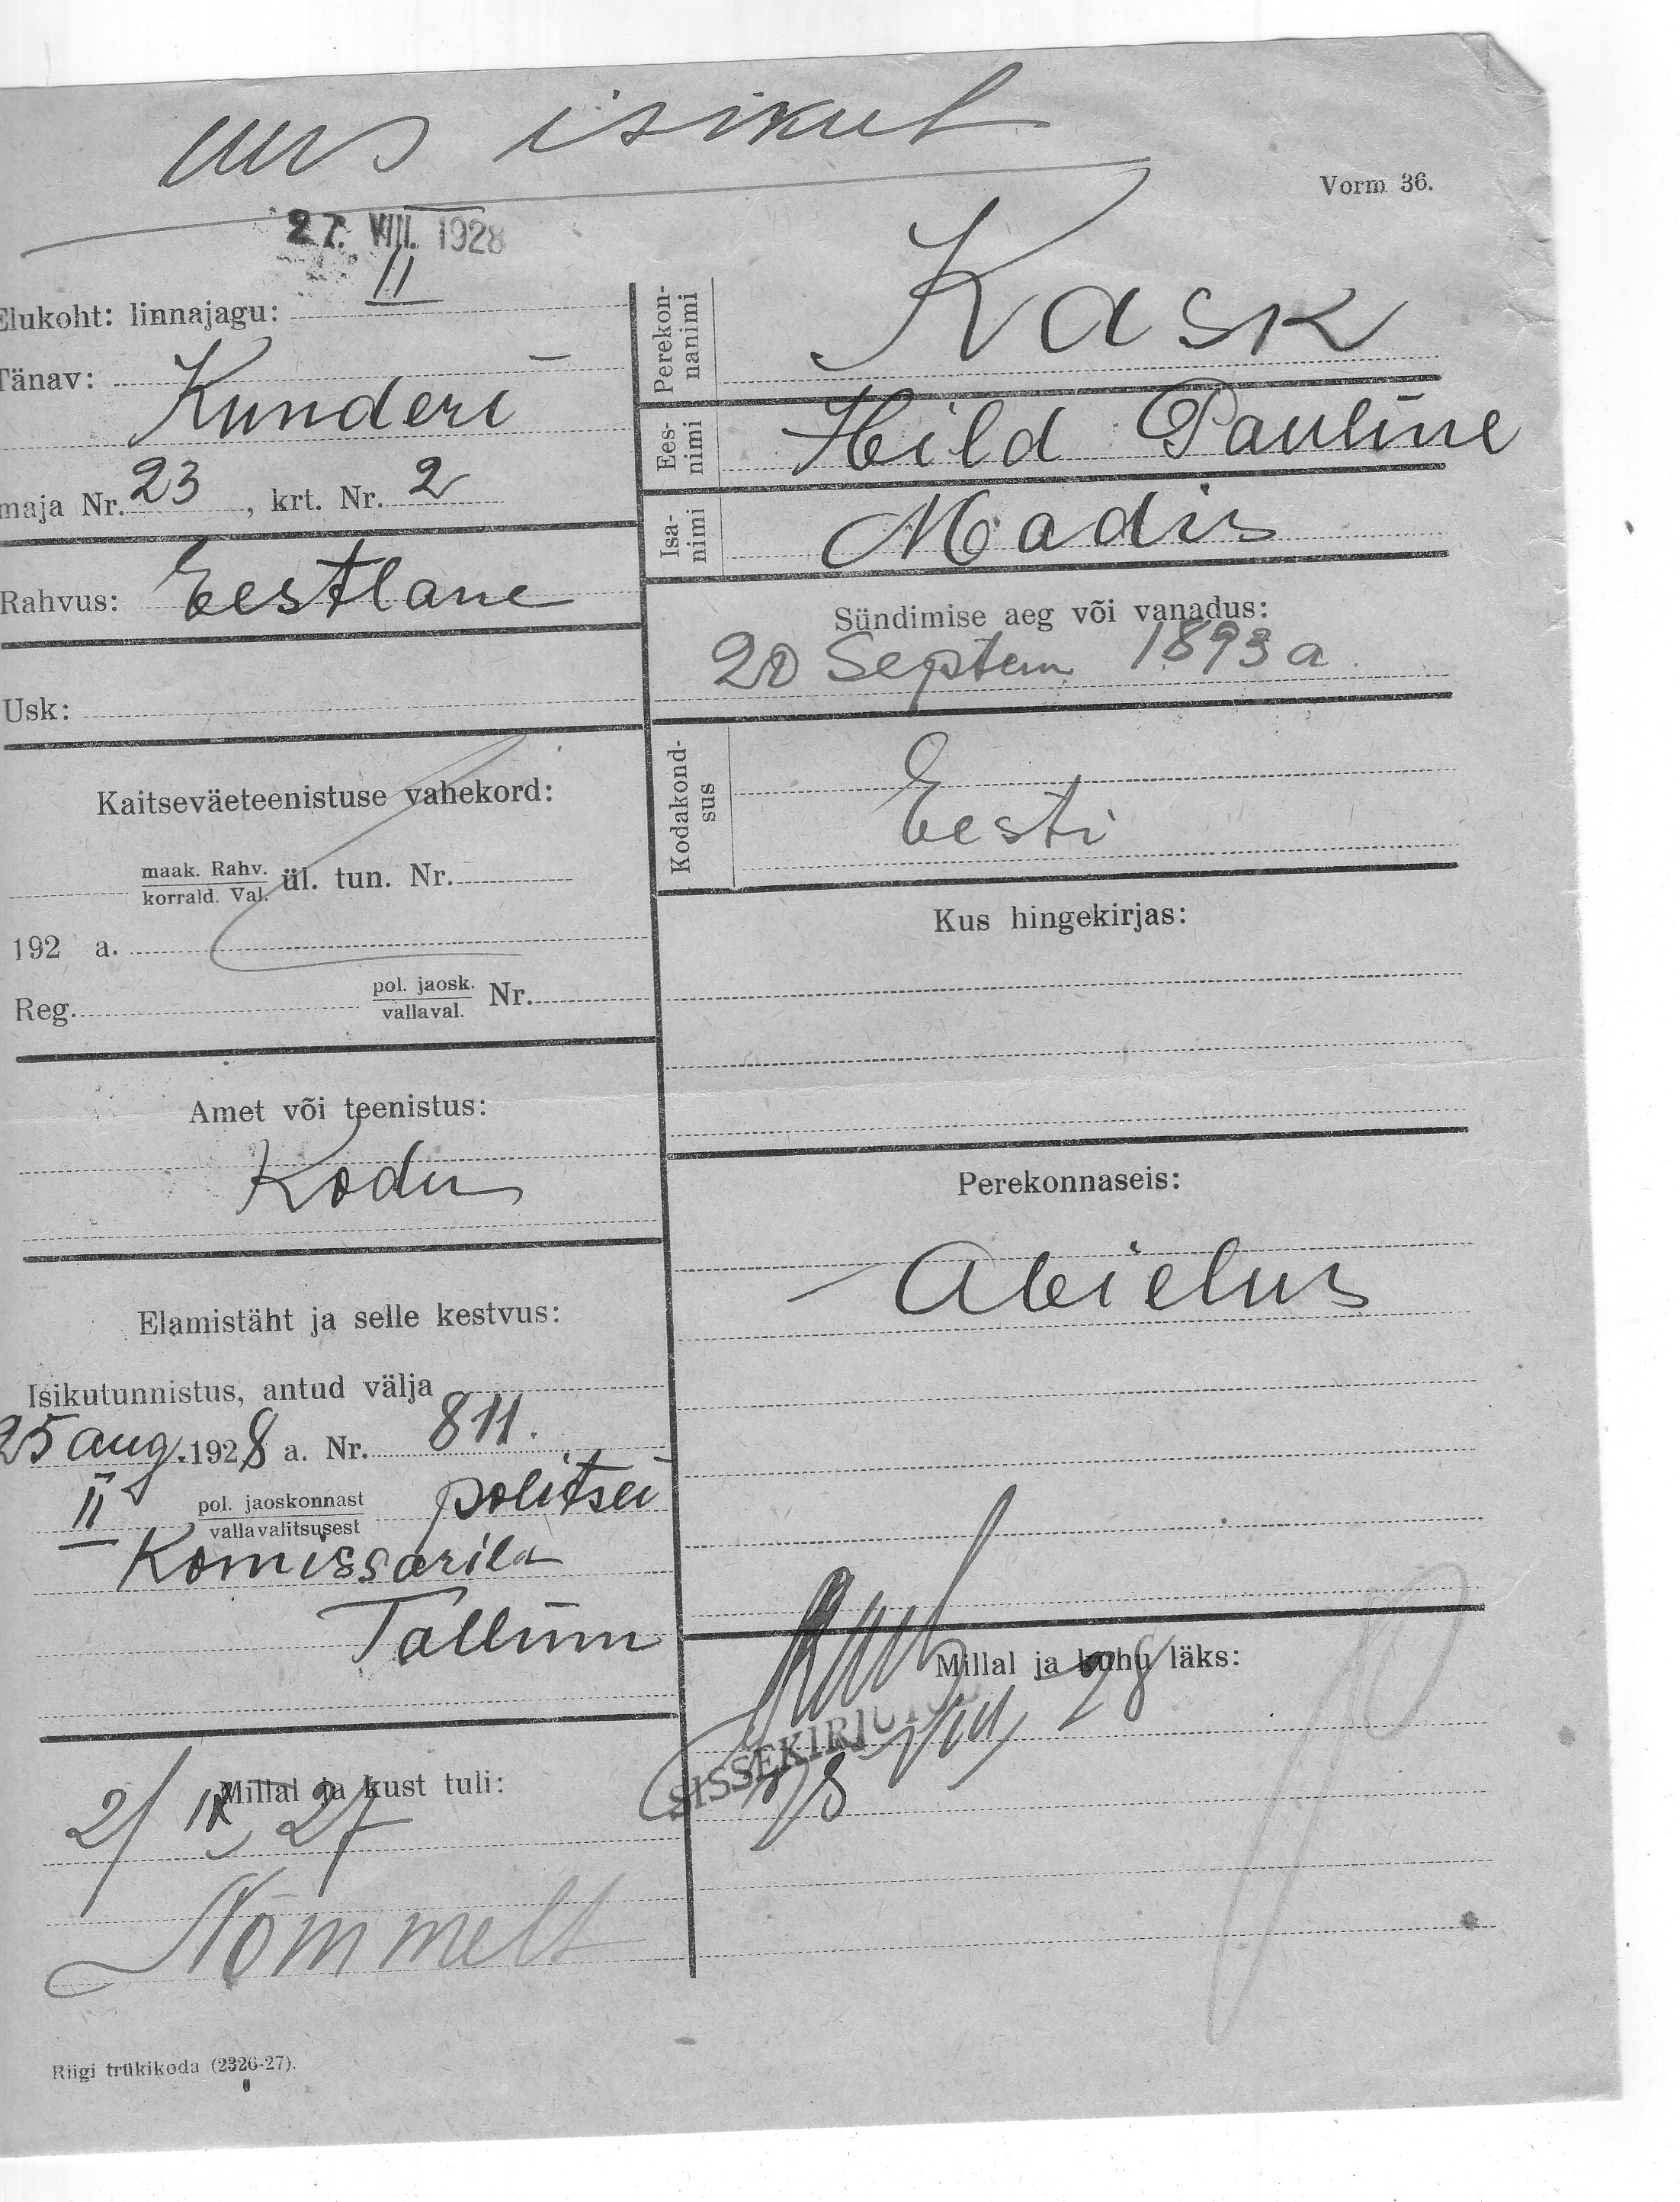 uus isikut
Vorm 36.
27. VIII. 1928
Elukoht: linnajagu: II
Tänav:
Kunderi
maja Nr. 23, krt. Nr. 2
Rahvus: Eestlane
Usk:
Kaitseväeteenistuse vahekord:
maak. Rahv.
korrald. Val. ül. tun. Nr.
192 a.
Reg. pol. jaosk. Nr.
vallaval.
Amet või teenistus:
Kodu
Elamistäht ja selle kestvus:
Isikutunnistus, antud välja
25 aug. 1928 a. Nr. 811.
II pol. jaoskonnast politsei
vallavalitsusest
Komissarilt
Tallinn
Millal ja kust tuli:
2/ IX 27
Nõmmelt
Riigi trükikoda (2326-27).
Perekon-
nanimi
Kask
Ees-
nimi
Hild Pauline
Isa-
nimi
Madis
Sündimise aeg või vanadus:
20 Septem. 1893 a.
Kodakond-
sus
Eesti
Kus hingekirjas:
Perekonnaseis:
Abielus
Millal ja kuhu läks:
28
SISSEKIRJUTUD
VIII
28